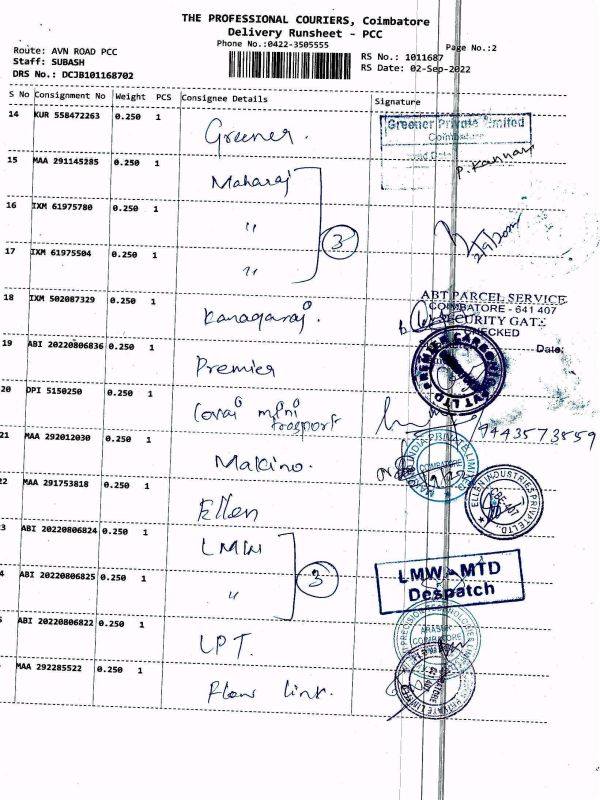 THE PROFESSIONAL COURIERS, Coimbatore
Delivery Runsheet - PCC
Phone No.:0422-3505555
Page No.:2
Route: AVN ROAD PCC
Staff: SUBASH
DRS No.: DCJB101168702
RS No.: 1011687
RS Date: 02-Sep-2022
S No Consignment No Weight PCS Consignee Details Signature
14 KUR 558472263 0.250 1 Greener.
Greener Private Limited
Coimbatore
P. Kannan
15 MAA 291145285 0.250 1 Maharaj
16 IXM 61975780 0.250 1 "
3
2/9/2022
17 IXM 61975504 0.250 1 "
18 IXM 502087329 0.250 1 Kanagaraj.
ABT PARCEL SERVICE
COIMBATORE - 641 407
SECURITY GATE
CHECKED
Date:
19 ABI 20220806836 0.250 1 Premier
PREMIER CARBONICS PVT LTD
20 DPI 5150250 0.250 1 Covai mini
trasport
9443573559
21 MAA 292012030 0.250 1 Makino.
INDIA PRIVATE LIMITED
COIMBATORE
2 MAA 291753818 0.250 1 Ellen
ELLEN INDUSTRIES PRIVATE LTD
3 ABI 20220806824 0.250 1 LMW
3
4 ABI 20220806825 0.250 1 "
LMW-MTD
Despatch
ABI 20220806822 0.250 1 LPT.
PRECISION
COIMBATORE
MAA 292285522 0.250 1 Flow link.
PRIVATE LIMITED